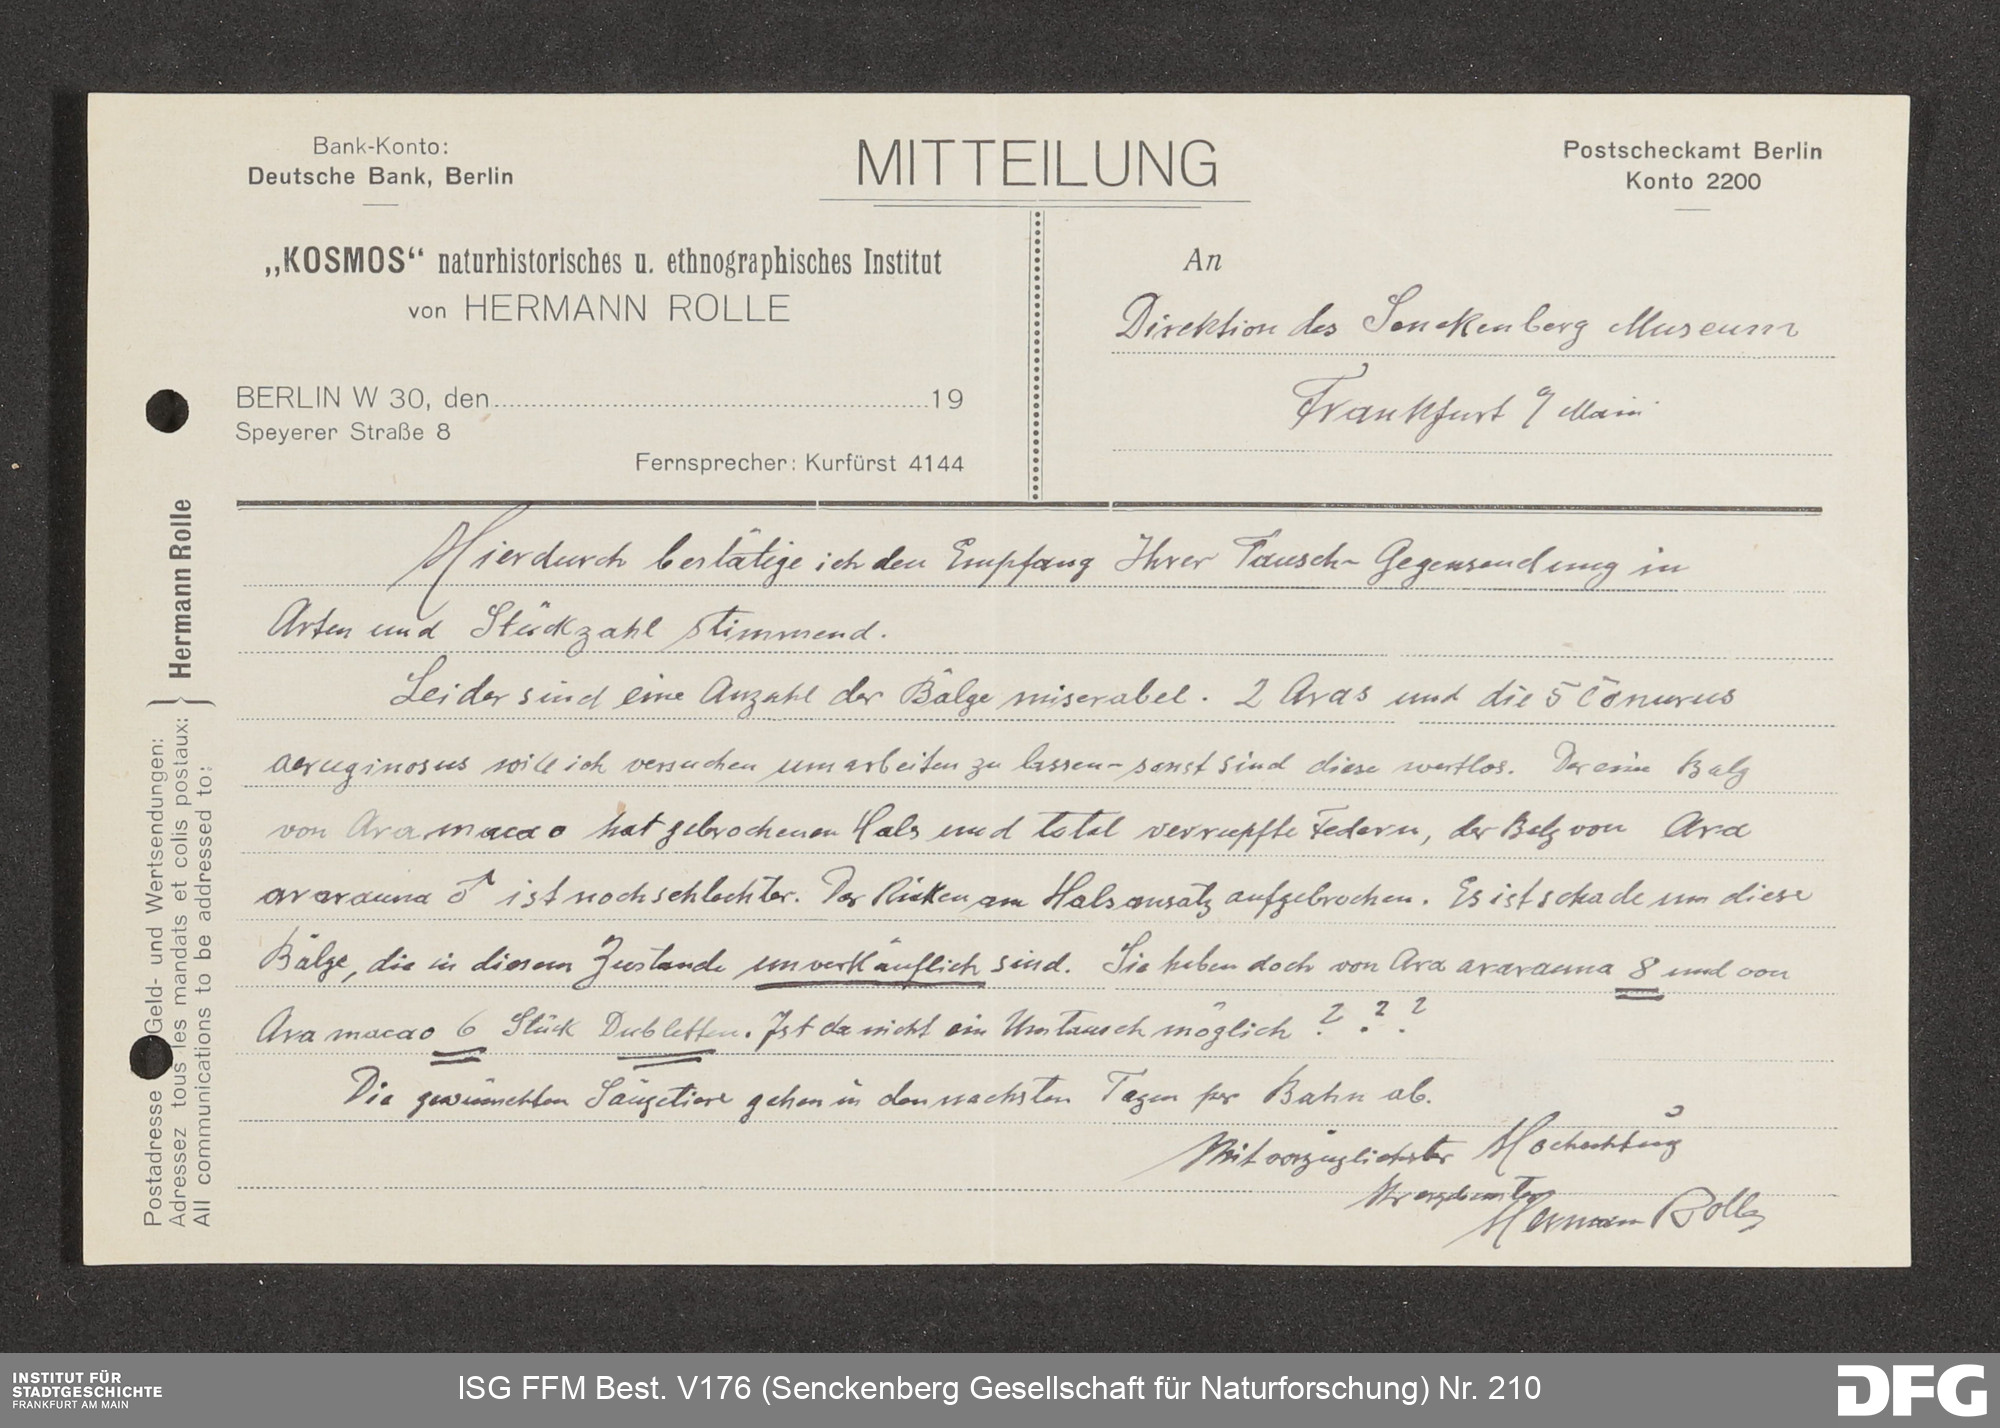 Bank-Konto:
Deutsche Bank, Berlin
MITTEILUNG
Postscheckamt Berlin
Konto 2200
„KOSMOS“ naturhistorisches u. ethnographisches Institut
von HERMANN ROLLE
BERLIN W 30, den 19
Speyerer Straße 8
Fernsprecher: Kurfürst 4144
An
Direktion des Senckenberg Museum
Frankfurt a/Main
Hierdurch bestätige ich den Empfang Ihrer Tausch-Gegensendung in
Arten und Stückzahl stimmend.
Leider sind eine Anzahl der Bälge miserabel. 2 Aras und die 5 Conurus
aeruginosus will ich versuchen umarbeiten zu lassen - sonst sind diese wertlos. Der eine Balg
von Ara macao hat gebrochenen Hals und total verrupfte Federn, der Balg von Ara
ararauna ♂ ist noch schlechter. Der Rücken am Halsansatz aufgebrochen. Es ist schade um diese
Bälge, die in diesem Zustande unverkäuflich sind. Sie haben doch von Ara ararauna 8 und von
Ara macao 6 Stück Dubletten. Ist da nicht ein Umtausch möglich ? ? ?
Die gewünschten Säugetiere gehen in den nächsten Tagen per Bahn ab.
Mit vorzüglichster Hochachtung
Ihr ergebenster
Hermann Rolle
Postadresse Geld- und Wertsendungen:
Adressez tous les mandats et colis postaux:
All communications to be addressed to:
Hermann Rolle
INSTITUT FÜR
STADTGESCHICHTE
FRANKFURT AM MAIN
ISG FFM Best. V176 (Senckenberg Gesellschaft für Naturforschung) Nr. 210
DFG